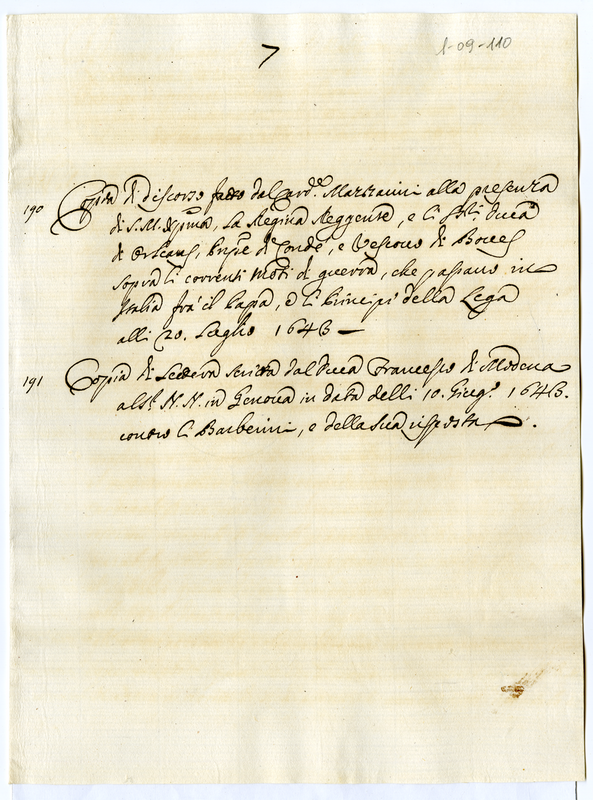 7
1-09-110
190 Copia di discorso fatto dal Card.e Mazzarini alla presenza
di S. M. Xp̃ma, la Regina Reggente, e li SS.ri Duca
di Orleans, Prñpe di Condé, e Vescovo di Boves
sopra li correnti moti di guerra, che passano in
Italia frà il Papa, e li Principi della Lega
alli 20. Luglio 1643
191 Copia di Lettera scritta dal Duca Francesco di Modena
al S.r N. N. in Genova in data delli 10. Giug.o 1643.
contro li Barberini, e della sua risposta.